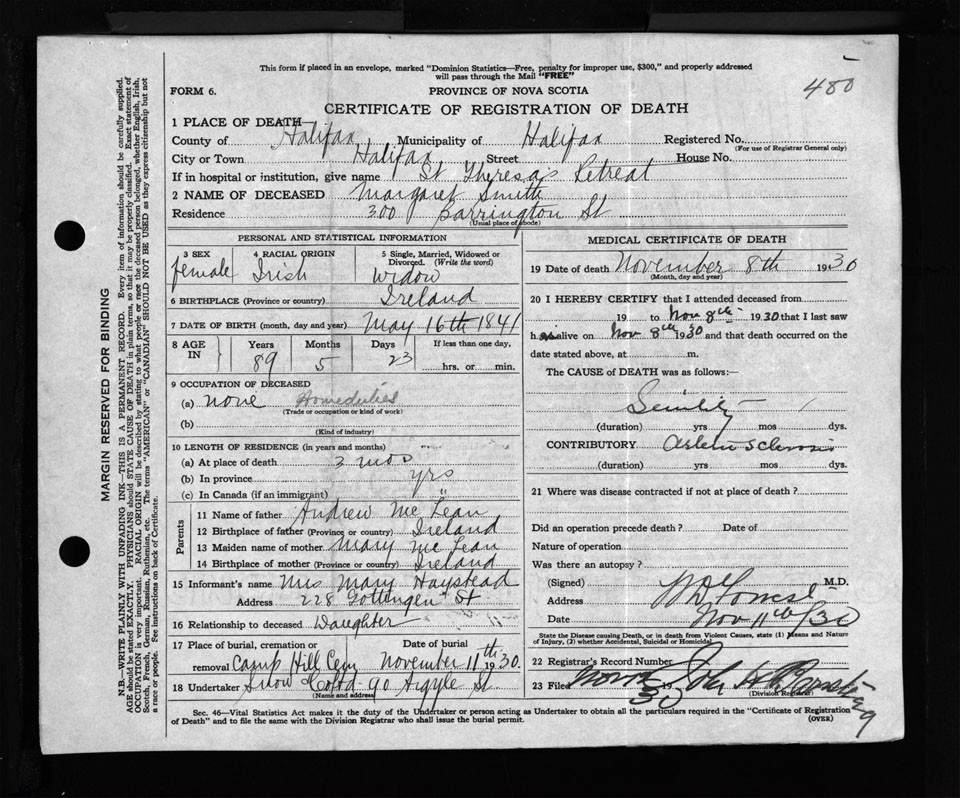 480
This form if placed in an envelope, marked "Dominion Statistics—Free, penalty for improper use, $300," and properly addressed
will pass through the Mail "FREE"
FORM 6.
PROVINCE OF NOVA SCOTIA
CERTIFICATE OF REGISTRATION OF DEATH
1 PLACE OF DEATH
County of Halifax Municipality of Halifax Registered No.
(For use of Registrar General only)
City or Town Halifax Street House No.
If in hospital or institution, give name St Theresa's Retreat
2 NAME OF DECEASED Margaret Smith
Residence 300 Barrington St
(Usual place of abode)
PERSONAL AND STATISTICAL INFORMATION
3 SEX 4 RACIAL ORIGIN 5 Single, Married, Widowed or
Divorced. (Write the word)
female Irish Widow
6 BIRTHPLACE (Province or country) Ireland
7 DATE OF BIRTH (month, day and year) May 16th 1841
8 AGE IN Years Months Days If less than one day,
89 5 23 hrs. or min.
9 OCCUPATION OF DECEASED
(a) none Homeduties
(Trade or occupation or kind of work)
(b)
(Kind of industry)
10 LENGTH OF RESIDENCE (in years and months)
(a) At place of death 3 mos
(b) In province yrs
(c) In Canada (if an immigrant) "
Parents
11 Name of father Andrew Mc Lean
12 Birthplace of father (Province or country) Ireland
13 Maiden name of mother Mary Mc Lean
14 Birthplace of mother (Province or country) Ireland
15 Informant's name Mrs Mary Haystead
Address 228 Gottingen St
16 Relationship to deceased Daughter
17 Place of burial, cremation or removal Camp Hill Cem Date of burial November 11th 1930
18 Undertaker Snow Co Ltd 90 Argyle St
(Name and address)
MEDICAL CERTIFICATE OF DEATH
19 Date of death November 8th 1930
(Month, day and year)
20 I HEREBY CERTIFY that I attended deceased from
19 to Nov 8th 1930 that I last saw
h alive on Nov 8th 1930 and that death occurred on the
date stated above, at m.
The CAUSE of DEATH was as follows:—
Senility
(duration) yrs mos dys.
CONTRIBUTORY Arterio Sclerosis
(duration) yrs mos dys.
21 Where was disease contracted if not at place of death?
Did an operation precede death? Date of
Nature of operation
Was there an autopsy?
(Signed) M.D.
Address
Date Nov 11th/30
State the Disease causing Death, or in death from Violent Causes, state (1) Means and Nature
of Injury, (2) whether Accidental, Suicidal or Homicidal.
22 Registrar's Record Number
23 Filed 19
(Division Registrar)
Sec. 46—Vital Statistics Act makes it the duty of the Undertaker or person acting as Undertaker to obtain all the particulars required in the "Certificate of Registration
of Death" and to file the same with the Division Registrar who shall issue the burial permit.
(OVER)
MARGIN RESERVED FOR BINDING
N.B.—WRITE PLAINLY WITH UNFADING INK—THIS IS A PERMANENT RECORD. Every item of information should be carefully supplied.
AGE should be stated EXACTLY. PHYSICIANS should STATE CAUSE OF DEATH in plain terms, so that it may be properly classified. Exact statement of
OCCUPATION is very important. RACIAL ORIGIN will be described by stating to what people or race the deceased person belonged, whether English, Irish,
Scotch, French, German, Russian, Ruthenian, etc. The terms "AMERICAN" or "CANADIAN" SHOULD NOT BE USED as they express citizenship but not
a race or people. See instructions on back of Certificate.